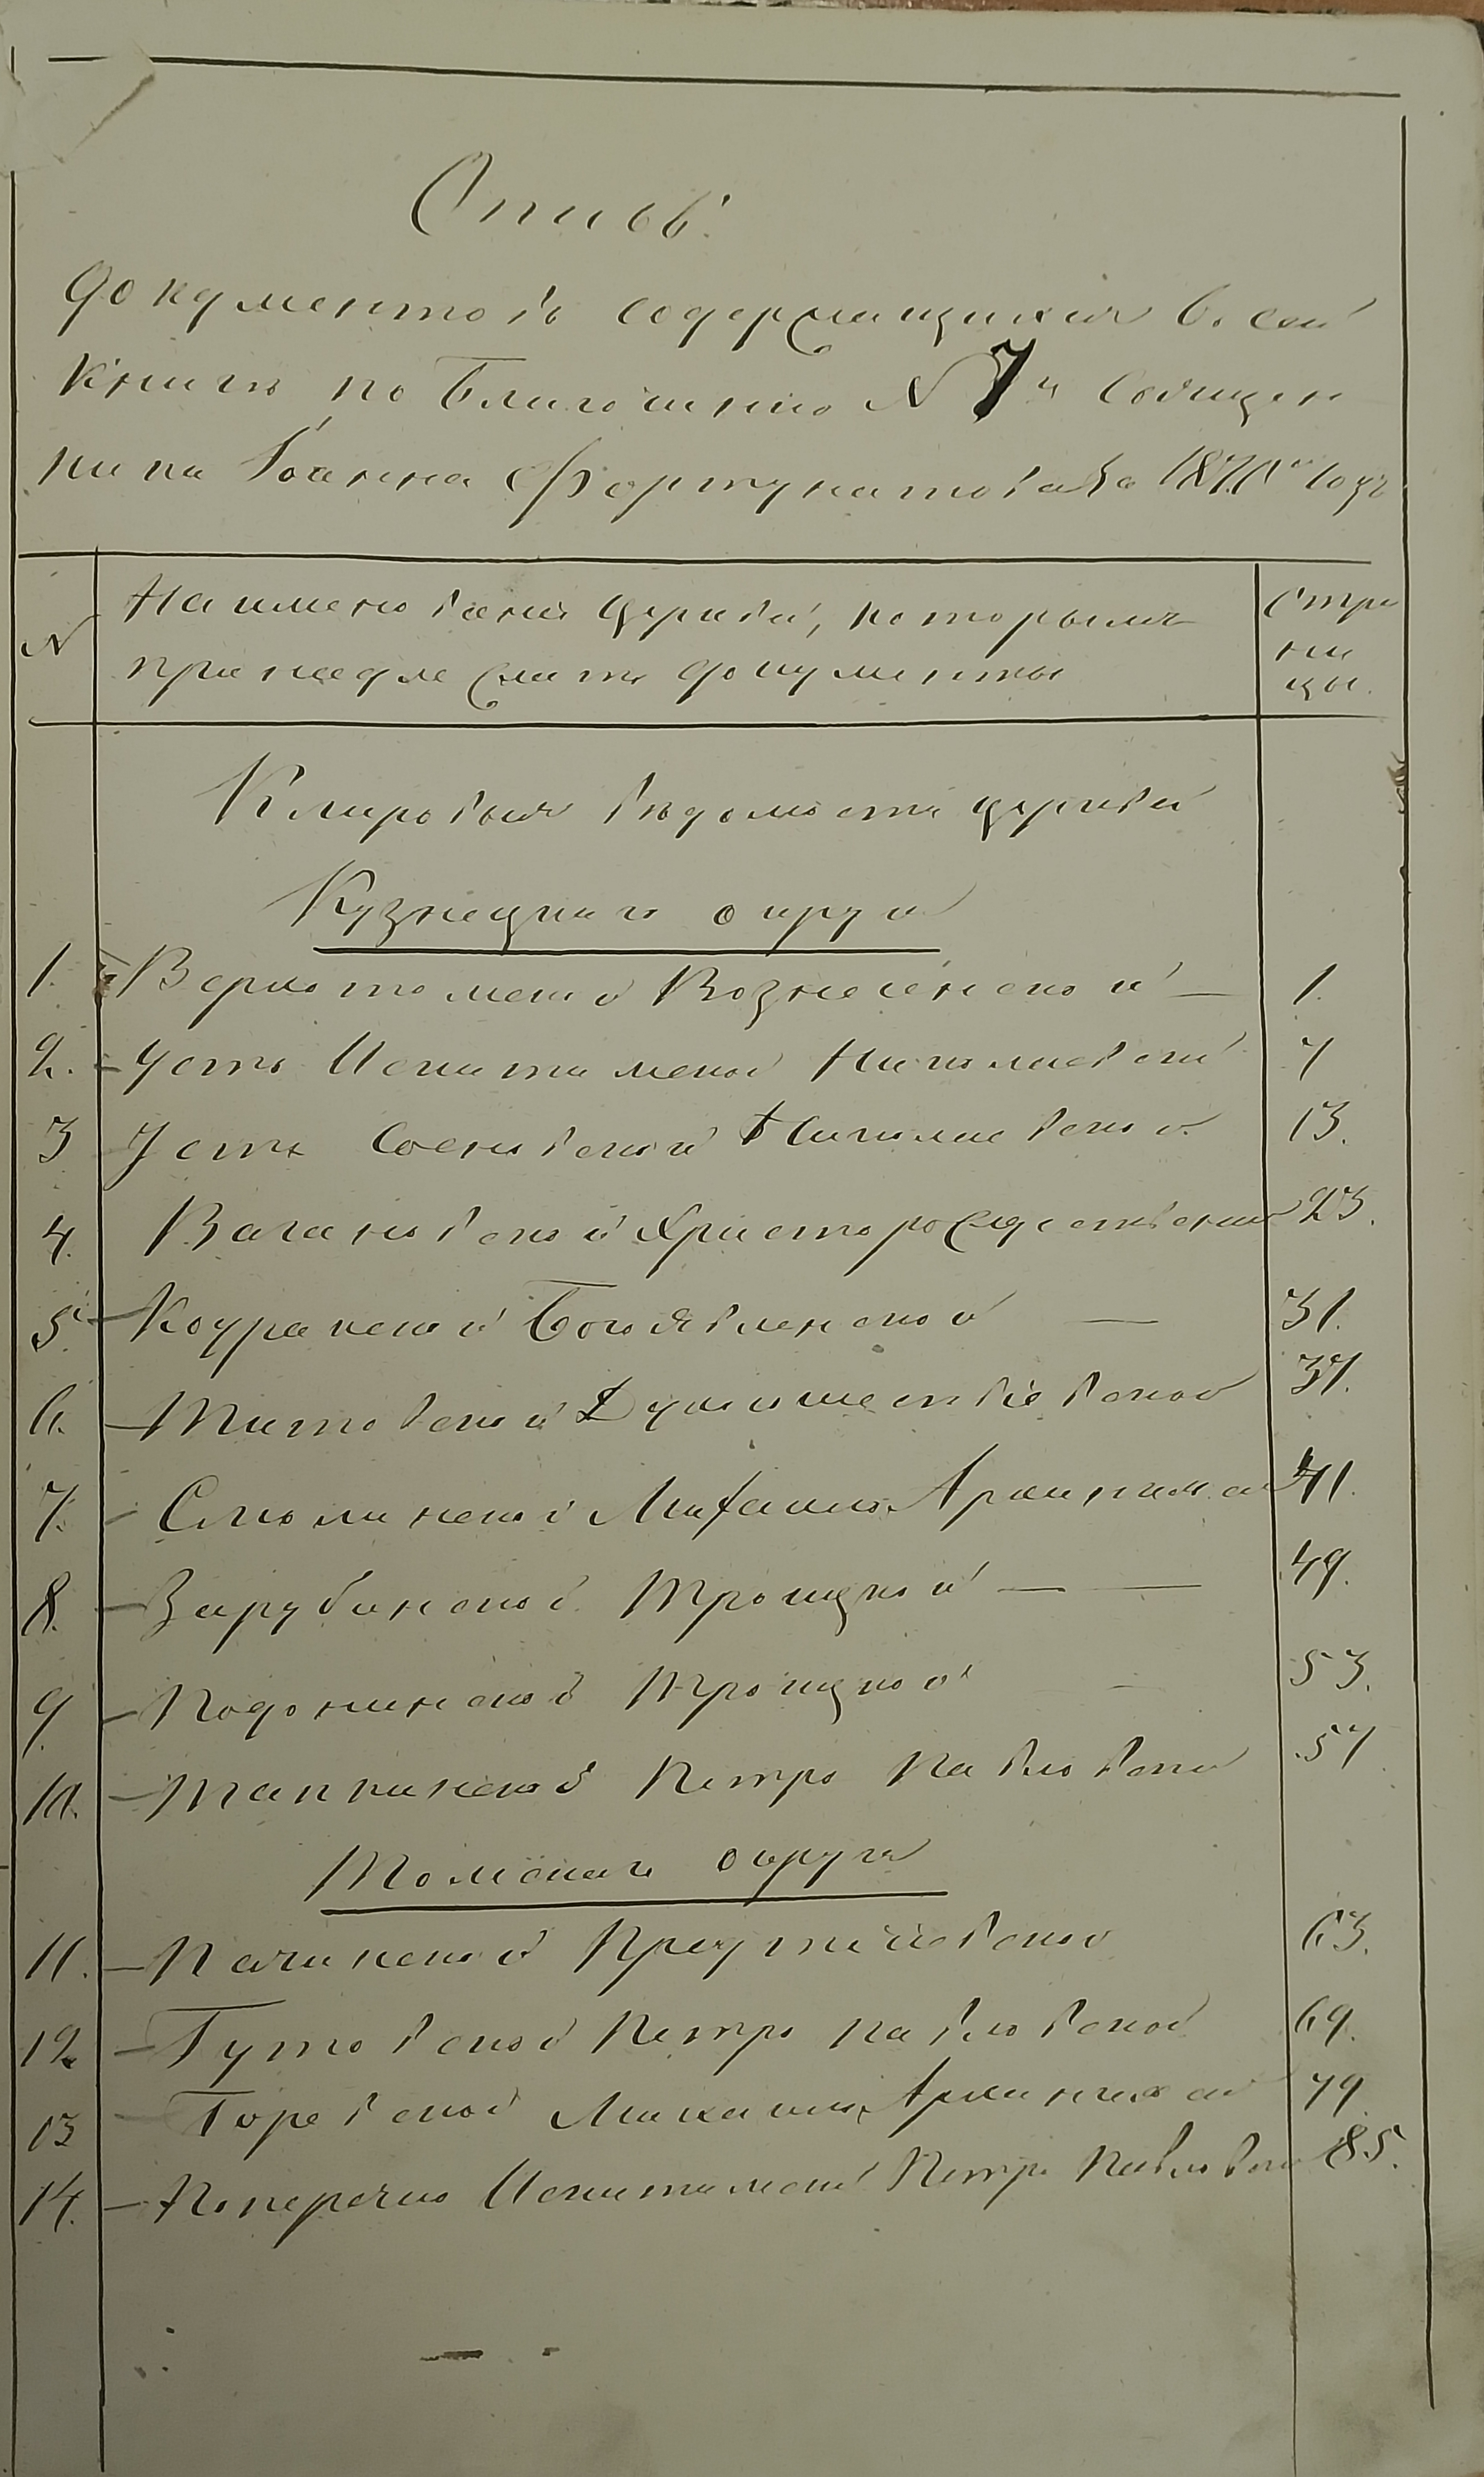 Опись
документовъ содержащихся въ сей
книгѣ по Благочинію N 7й Священ
ника Іоанна Фортунатова за годъ
N
Наименованія Церквей, которымъ
принадлежатъ документы
Стра
ни
цы.
Клировыя вѣдомости церквей
Кузнецкаго округа
1. Верхотомской Вознесенской — 1.
2. – Усть Искитимской Николаевской 7
3 Усть Сосновской Николаевской 13.
4. Вагановской Христорождественской 23.
5. – Коуракской Богоявленской — 31.
6. – Титовской Духосошествіевской 37.
7. – Смолинской Михаило Архангельской 41.
8. – Зарубинской Троицкой — — 49.
9. – Подонинской Троицкой — 53.
10. – Тапкинской Петро Павловской 57
Томскаго округа
11. – Пачинской Предтеческой 63.
12 – Гутовской Петро Павловской 69.
13 – Горевской Михаило Архангельской 79
14. – Поперечно Искитимской Петро Павловской 85.